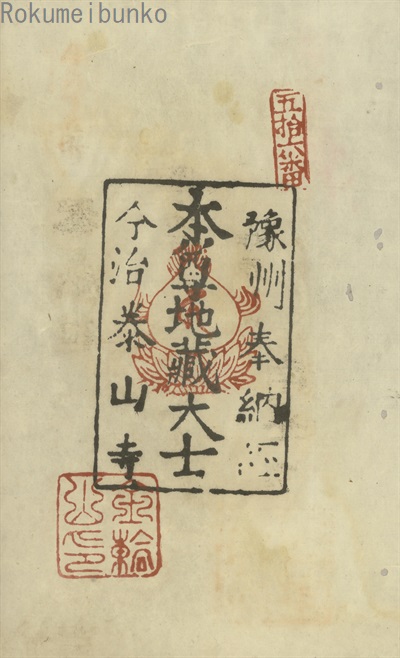 Rokumeibunko
五拾六番
豫州奉納経
本尊地藏大士
今治泰山寺
金輪山印